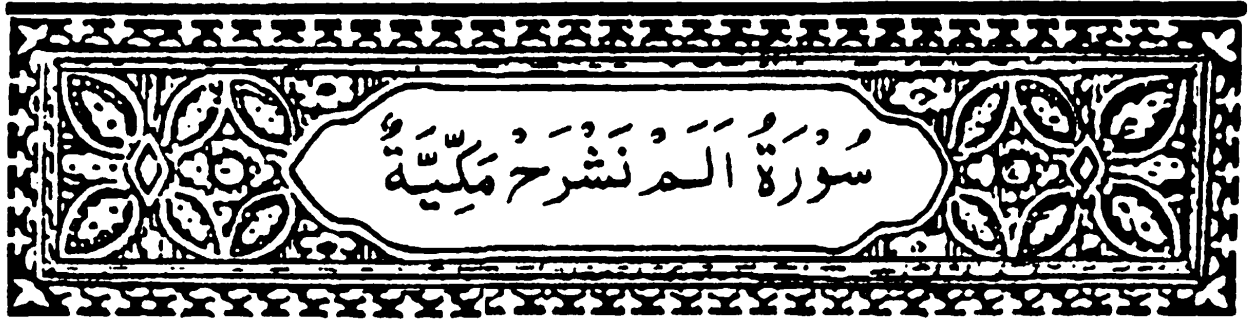 سُوْرَةُ اَلَمْ نَشْرَحْ مَكِّيَّةٌ